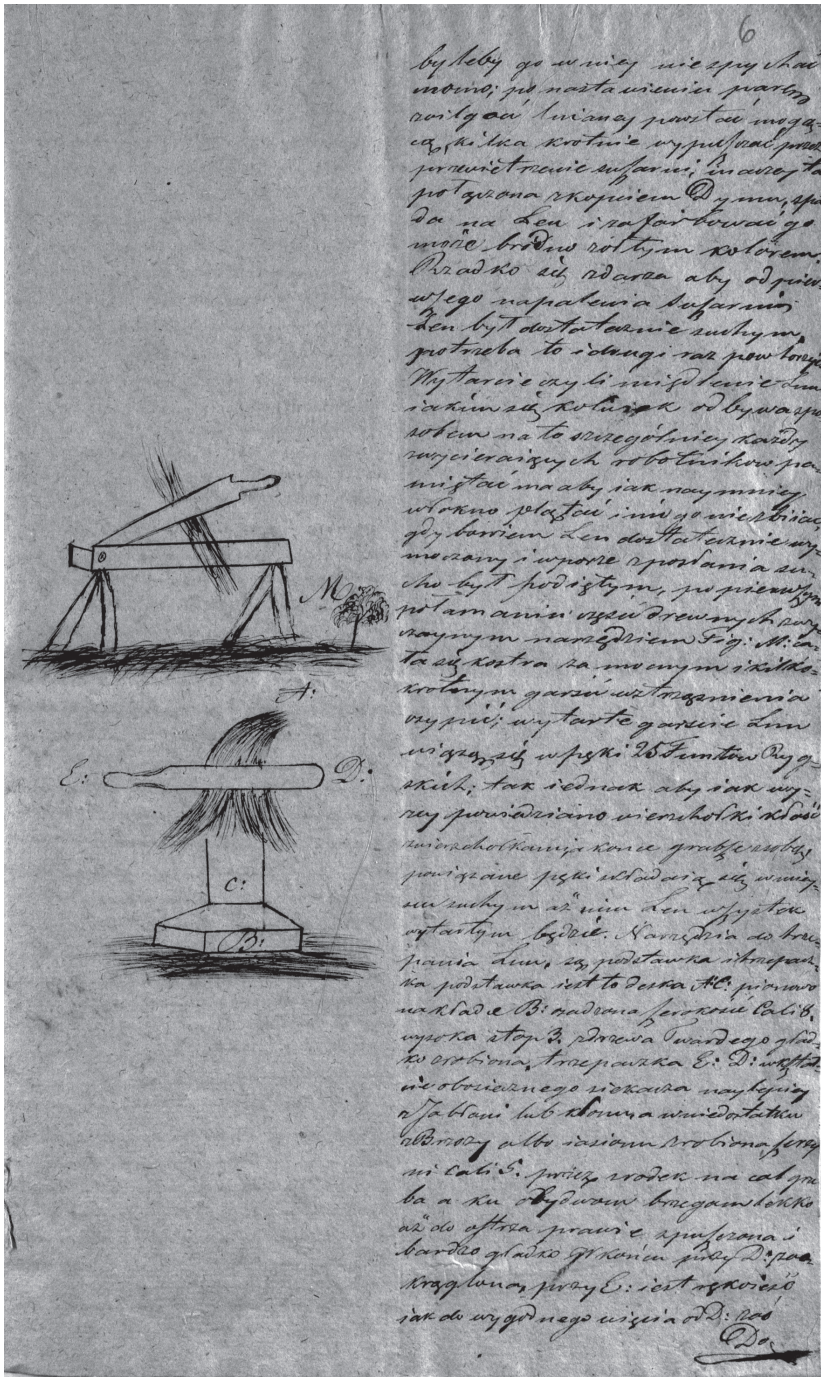 6
byleby go w niey niezpychać
mocno; po nastawieniu parę
zwilgoci lnianey powstać mogą-
cą, kilka krotnie wypuszczać przez
przewietrzenie suszarni; inaczey ta
połączona zkopciem Dymu, spa
da na Len i zafarbować go
może brudno zółtym kolorem.
Rzadko się zdarza aby od pierw-
wszego napalenia suszarni
Len był dostatecznie suchym
potrzeba to i drugi raz powtorzyć
Wytarcie czyli międlenie Lnu
iakim się kolwiek odbywa spo
sobem na to szczegolniey każdy
zwycieraiących robotnikow pa-
miętać ma aby iak naymniey
włokno plątać i
gdy bowiem Len dostatecznie wy-
moczony i wporze zposłania su-
cho był podiętym, po pierwszym
połamaniu części drewnych zwy
czaynym narzędziem Fig: M: ca-
ła się kostra za mocnym i kilko-
krotnym garści wztrząśnieniu
ozypić; wytarte garście Lnu
wiążą się w pęki 25 Funtow Ryg-
skich; tak iednak aby iak wy-
zey powiedziano wierzchołki kłaść
zwierzchołkami, końce grubsze zsobą,
powiązane pęki składaią się w miey-
scu suchym aż nim Len wszystek
wytartym będzie. Narzędzia do trze-
pania Lnu, są podstawka i trzepacz-
ka podstawka iest to deska A: C: pionowo
nakładę B: szerokość Cali 8,
wysoka stop 3. zdrzewa Twardego gład-
ko zrobiona, trzepaczka E: D: wkształ-
cie obosiecznego siekacza naylepiey
z Jabłoni lub klonu, a w niedostatku
z Brzozy albo iasionu zrobiona szero
ni cali 5. przez srodek na cal gru
ba a ku obydwom brzegom lekko
aż do ostrza prawie spuszczona i
bardzo gładko W końcu przy D: zao-
krąglona, przy E: iest rękoieść
jak do wygodnego uięcia od D: zaś
Do
M:
A:
E:
D:
C:
B: